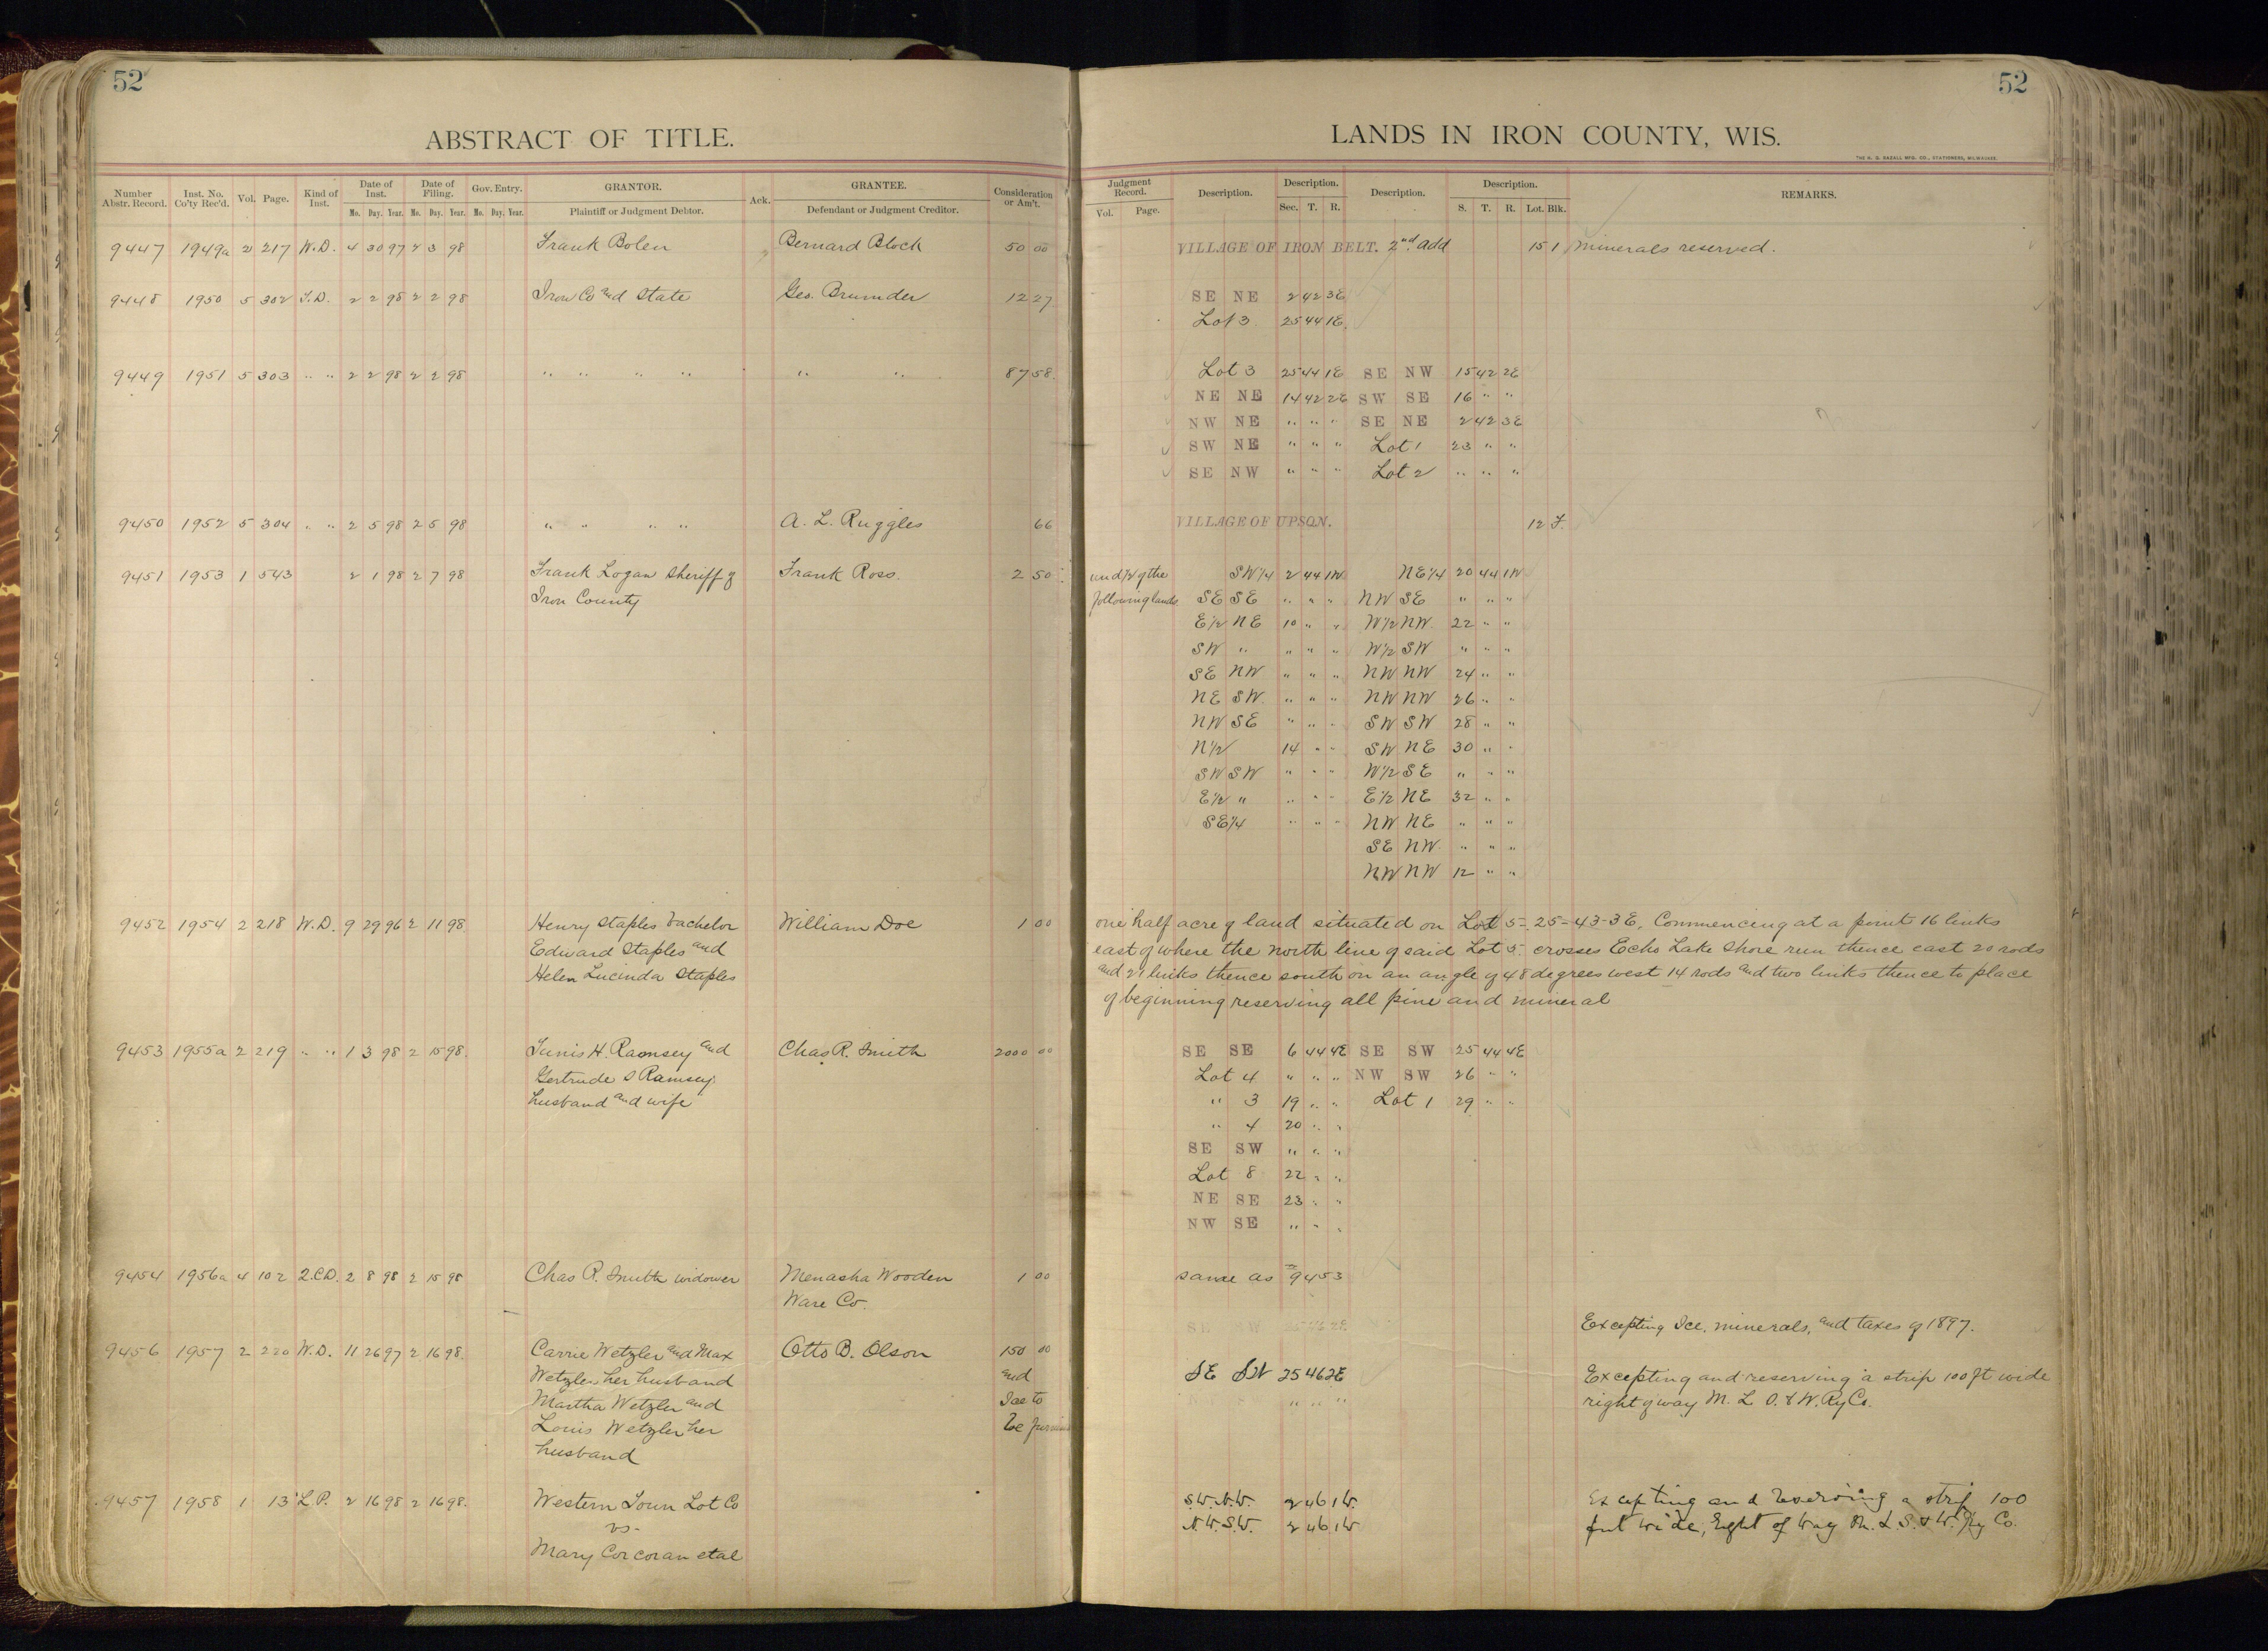 52
ABSTRACT OF TITLE.
Number Abstr. Record. Inst. No. Co'ty Rec'd. Vol. Page. Kind of Inst. Date of Inst. Date of Filing. Gov. Entry. GRANTOR. Ack. GRANTEE. Consideration or Am't.
Mo. Day. Year. Mo. Day. Year. Mo. Day. Year. Plaintiff or Judgment Debtor. Defendant or Judgment Creditor.
9447 1949a 2 217 W.D. 4 30 97 2 3 98 Frank Bolen Bernard Block 50 00
9448 1950 5 302 T.D. 2 2 98 2 2 98 Iron Co and State Geo. Brumder 12 27
9449 1951 5 303 " " 2 2 98 2 2 98 " " " " " " 87 58
9450 1952 5 304 " " 2 5 98 2 5 98 " " " " A. L. Ruggles 66
9451 1953 1 543 2 1 98 2 7 98 Frank Logan Sheriff of Frank Ross. 2 50
Iron County
9452 1954 2 218 W.D. 9 29 96 2 11 98 Henry Staples bachelor William Doe 1 00
Edward Staples and
Helen Lucinda Staples
9453 1955a 2 219 " " 1 3 98 2 15 98. Tunis H. Ramsey and Chas R. Smith 2000 00
Gertrude S Ramsey
husband and wife
9454 1956a 4 102 2.C.D. 2 8 98 2 15 98 Chas R. Smith widower Menasha Wooden 1 00
Ware Co.
9456 1957 2 220 W.D. 11 26 97 2 16 98. Carrie Wetzler and Max Otto B. Olson 150 00
Wetzler her husband and
Martha Wetzler and Ice to
Louis Wetzler her be
husband
9457 1958 1 13 L.P. 2 16 98 2 16 98. Western Town Lot Co
vs.
Mary Corcoran etal
52
LANDS IN IRON COUNTY, WIS.
THE H. G. RAZALL MFG. CO., STATIONERS, MILWAUKEE.
Judgment Record. Description. Description. Description. Description. REMARKS.
Vol. Page. Sec. T. R. S. T. R. Lot. Blk.
VILLAGE OF IRON BELT. 2nd add 15 1 minerals reserved.
SE NE 2 42 3E
Lot 3 25 44 1E.
Lot 3 25 44 1E SE NW 15 42 2E
NE NE 14 42 2E SW SE 16 " "
NW NE " " " SE NE 2 42 3E
SW NE " " " Lot 1 23 " "
SE NW " " " Lot 2 " " "
VILLAGE OF UPSON. 12 F.
und 1/2 of the SW 1/4 2 44 1W NE 1/4 20 44 1W
following lands SE SE " " " NW SE " " "
E 1/2 NE 10 " " W 1/2 NW. 22 " "
SW " " " " W 1/2 SW " " "
SE NW " " " NW NW 24 " "
NE SW. " " " NW NW 26 " "
NW SE " " " SW SW 28 " "
N 1/2 14 " " SW NE 30 " "
SW SW " " " W 1/2 SE " " "
E 1/2 " " " " E 1/2 NE 32 " "
SE 1/4 " " " NW NE " " "
SE NW. " " "
NW NW 12 " "
one half acre of land situated on Lot 5 - 25 - 43 - 3E. Commencing at a point 16 links
east of where the north line of said Lot 5. crosses Echo Lake Shore run thence east 20 rods
and 21 links thence south on an angle of 48 degrees west 14 rods and two links thence to place
of beginning reserving all pine and mineral
SE SE 6 44 4E SE SW 25 44 4E
Lot 4 " " " NW SW 26 " "
" 3 19 " " Lot 1 29 " "
" 4 20 " "
SE SW " " "
Lot 8 22 " "
NE SE 23 " "
NW SE " " "
same as 9453
Excepting Ice, minerals, and taxes of 1897.
SE SW 25 46 2E Excepting and reserving a strip 100 ft wide
right of way M. L. S. & W. Ry Co.
S.W. N.W. 2 46 1W. Excepting and Reserving a strip 100
N.W. S.W. 2 46 1W feet wide, Right of Way M. L. S. & W. Ry Co.